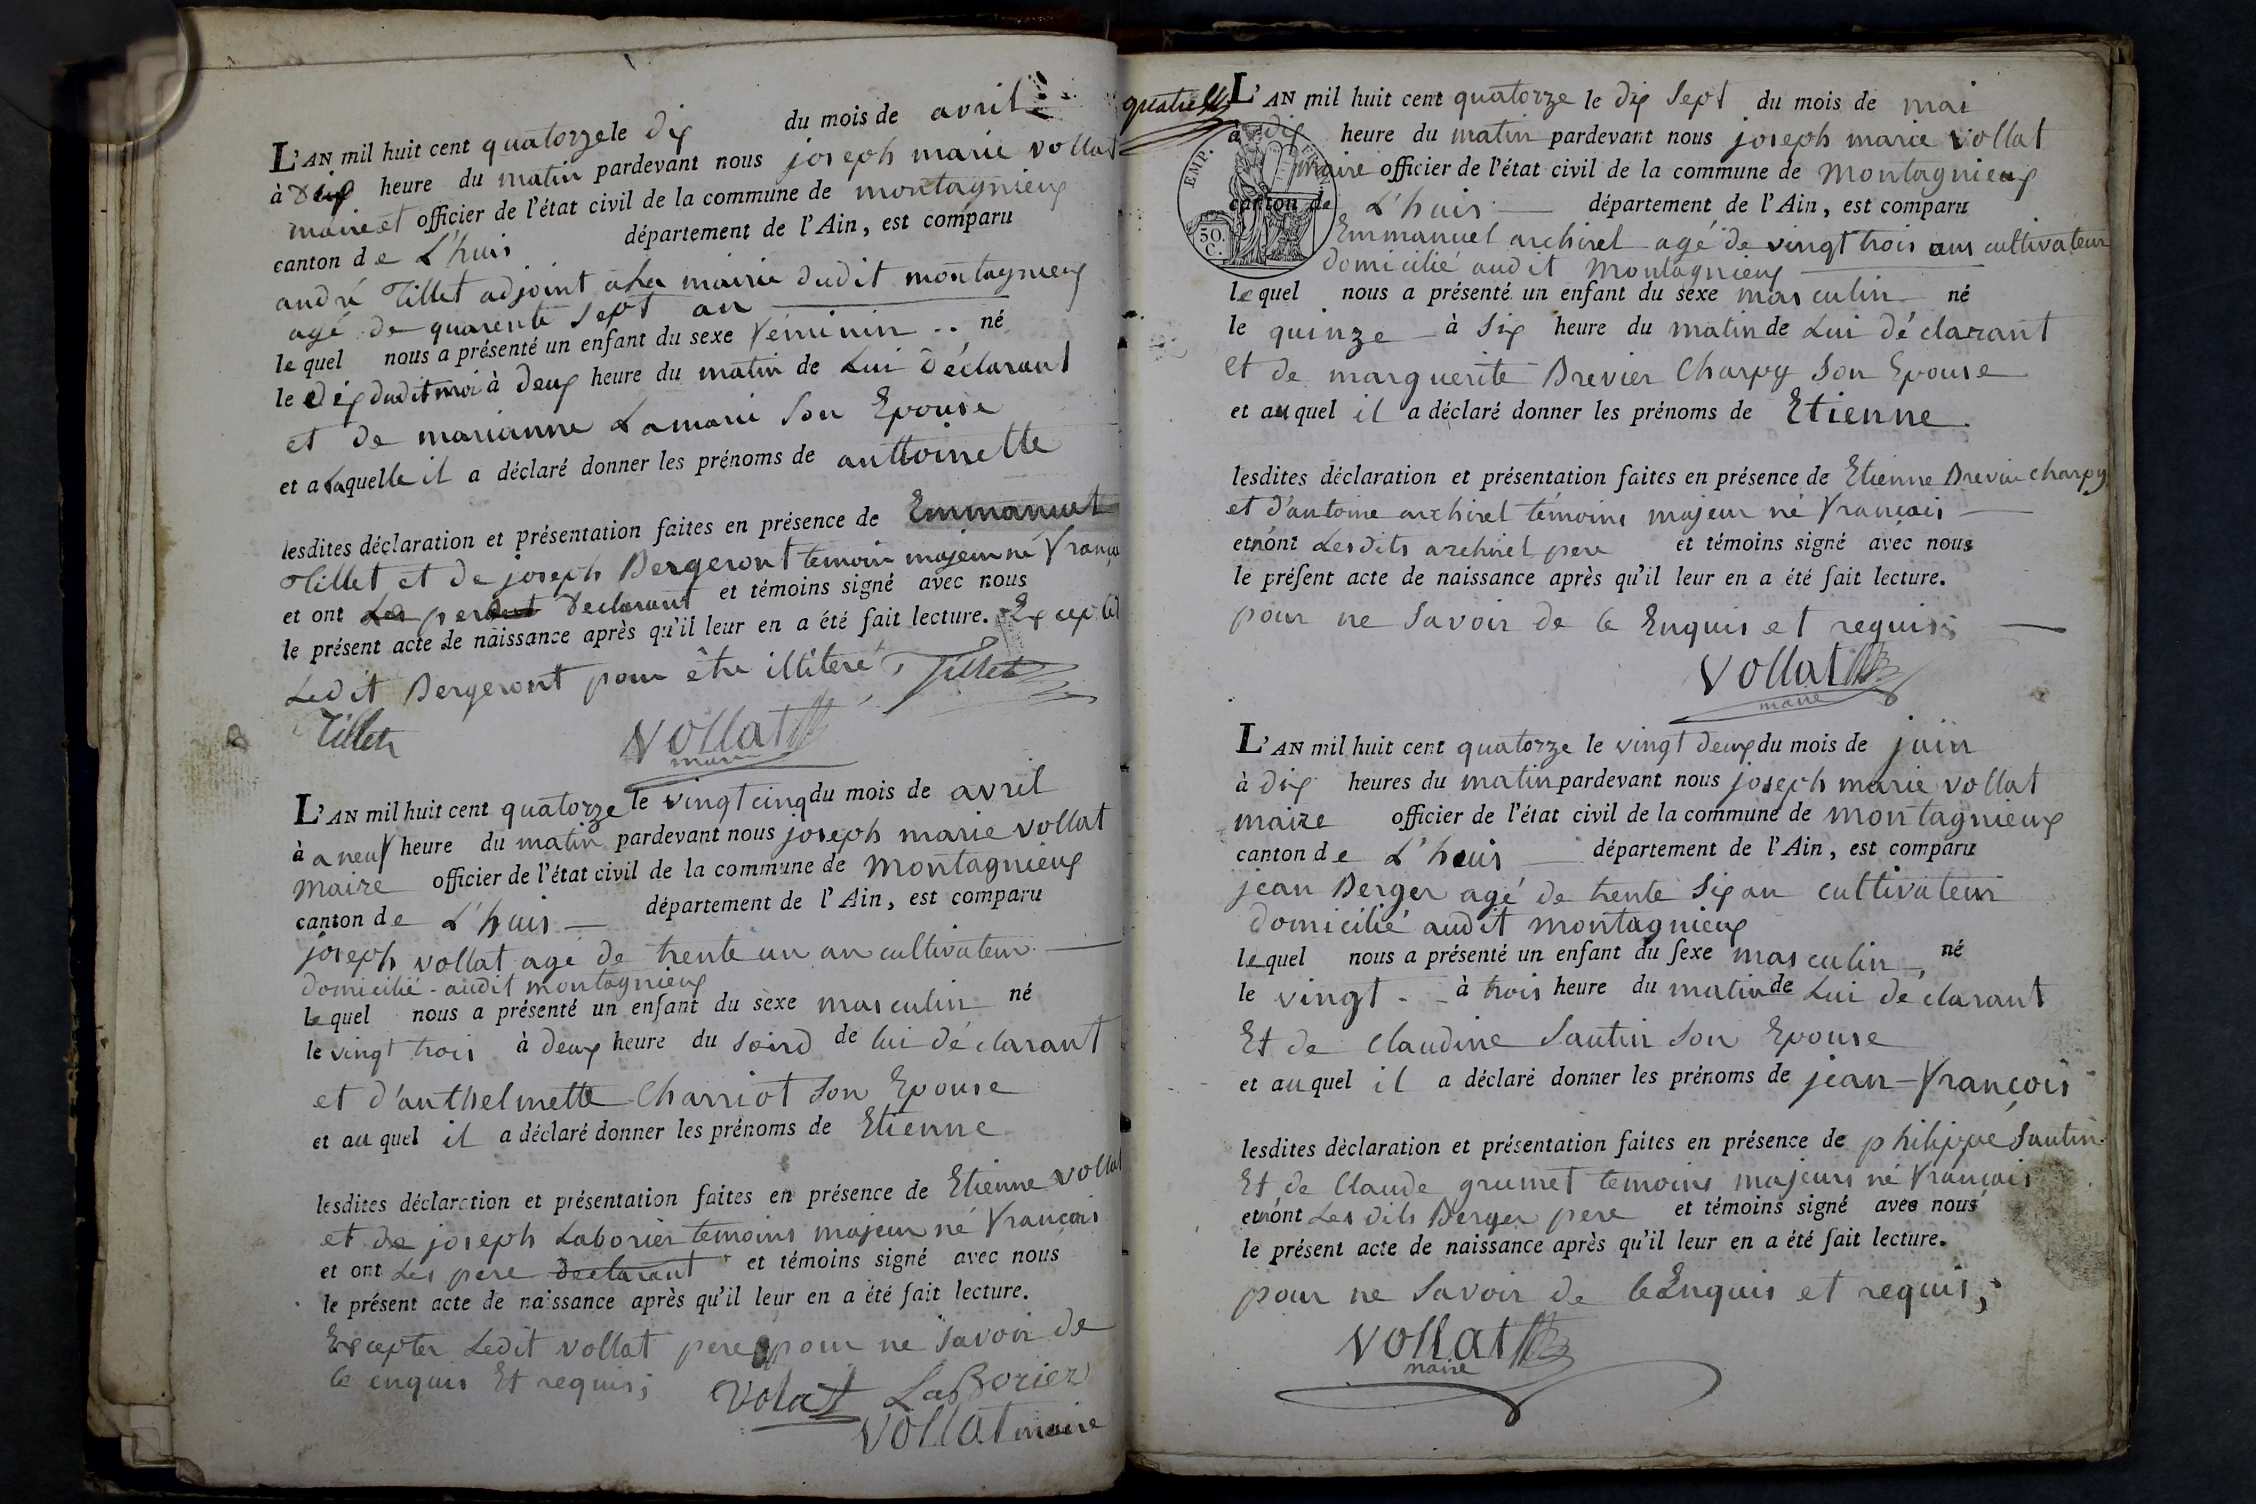 L'AN mil huit cent quatorze le dix du mois de avril
à dix heure du matin pardevant nous joseph marie vollat
maire et officier de l'état civil de la commune de montagnieux
canton de L'huis département de l'Ain, est comparu
andré Tillet adjoint a La mairie dudit montagnieux
agé de quarente sept an
le quel nous a présenté un enfant du sexe féminin né
le dix dudit moi à deux heure du matin de Lui déclarant
et de marianne Lamarie son Epouse
et a Laquelle il a déclaré donner les prénoms de anttoinette
lesdites déclaration et présentation faites en présence de Emmanuel
Tillet et de joseph Bergeront temoin majeur né françai
et ont declarant et témoins signé avec nous
le présent acte de naissance après qu'il leur en a été fait lecture. Excepté
Ledit Bergeront pour être illiteré Tillet
Tillet Vollat
maire
L'AN mil huit cent quatorze le vingt cinq du mois de avril
à a neuf heure du matin pardevant nous joseph marie vollat
maire officier de l'état civil de la commune de Montagnieux
canton de L'huis département de l'Ain, est comparu
joseph vollat agé de trente un an cultivateur
domicilié audit montagnieux
le quel nous a présenté un enfant du sexe masculin né
le vingt trois à deux heure du soird de lui déclarant
et d'anthelmette Charriot son Epouse
et au quel il a déclaré donner les prénoms de Etienne
lesdites déclaration et présentation faites en présence de Etienne vollat
et de joseph Laborier temoins majeur né français
et ont Les pere declarant et témoins signé avec nous
le présent acte de naissance après qu'il leur en a été fait lecture.
Excepter Ledit vollat pere pour ne savoir de
ce enquis Et requis;
Volat LaBorier
Vollat maire
quatre
L'AN mil huit cent quatorze le dix sept du mois de mai
à dix heure du matin pardevant nous joseph marie vollat
maire officier de l'état civil de la commune de Montagnieux
canton de L'huis département de l'Ain, est comparu
EMP. FRAN.
50. C.
Emmanuel archirel agé de vingt trois ans cultivateur
domicilié audit Montagnieux
le quel nous a présenté un enfant du sexe masculin né
le quinze à six heure du matin de Lui déclarant
et de marguerite Brevier Charpy son Epouse
et au quel il a déclaré donner les prénoms de Etienne
lesdites déclaration et présentation faites en présence de Etienne Brevier charpy
et d'antoine archirel témoins majeur né français
et n'ont Lesdits archirel pere et témoins signé avec nous
le présent acte de naissance après qu'il leur en a été fait lecture.
pour ne savoir de ce Enquis et requis;
Vollat
maire
L'AN mil huit cent quatorze le vingt deux du mois de juin
à dix heures du matin pardevant nous joseph marie vollat
maire officier de l'état civil de la commune de montagnieux
canton de L'huis département de l'Ain, est comparu
jean Berger agé de trente six an cultivateur
domicilié audit montagnieux
le quel nous a présenté un enfant du sexe masculin, né
le vingt à trois heure du matin de Lui déclarant
Et de claudine Sautin son Epouse
et au quel il a déclaré donner les prénoms de jean-françois
lesdites déclaration et présentation faites en présence de philippe Sautin
Et de Claude grumet temoins majeurs né français
et n'ont Les dits Berger pere et témoins signé avec nous
le présent acte de naissance après qu'il leur en a été fait lecture.
pour ne savoir de ce Enquis et requis;
Vollat
maire